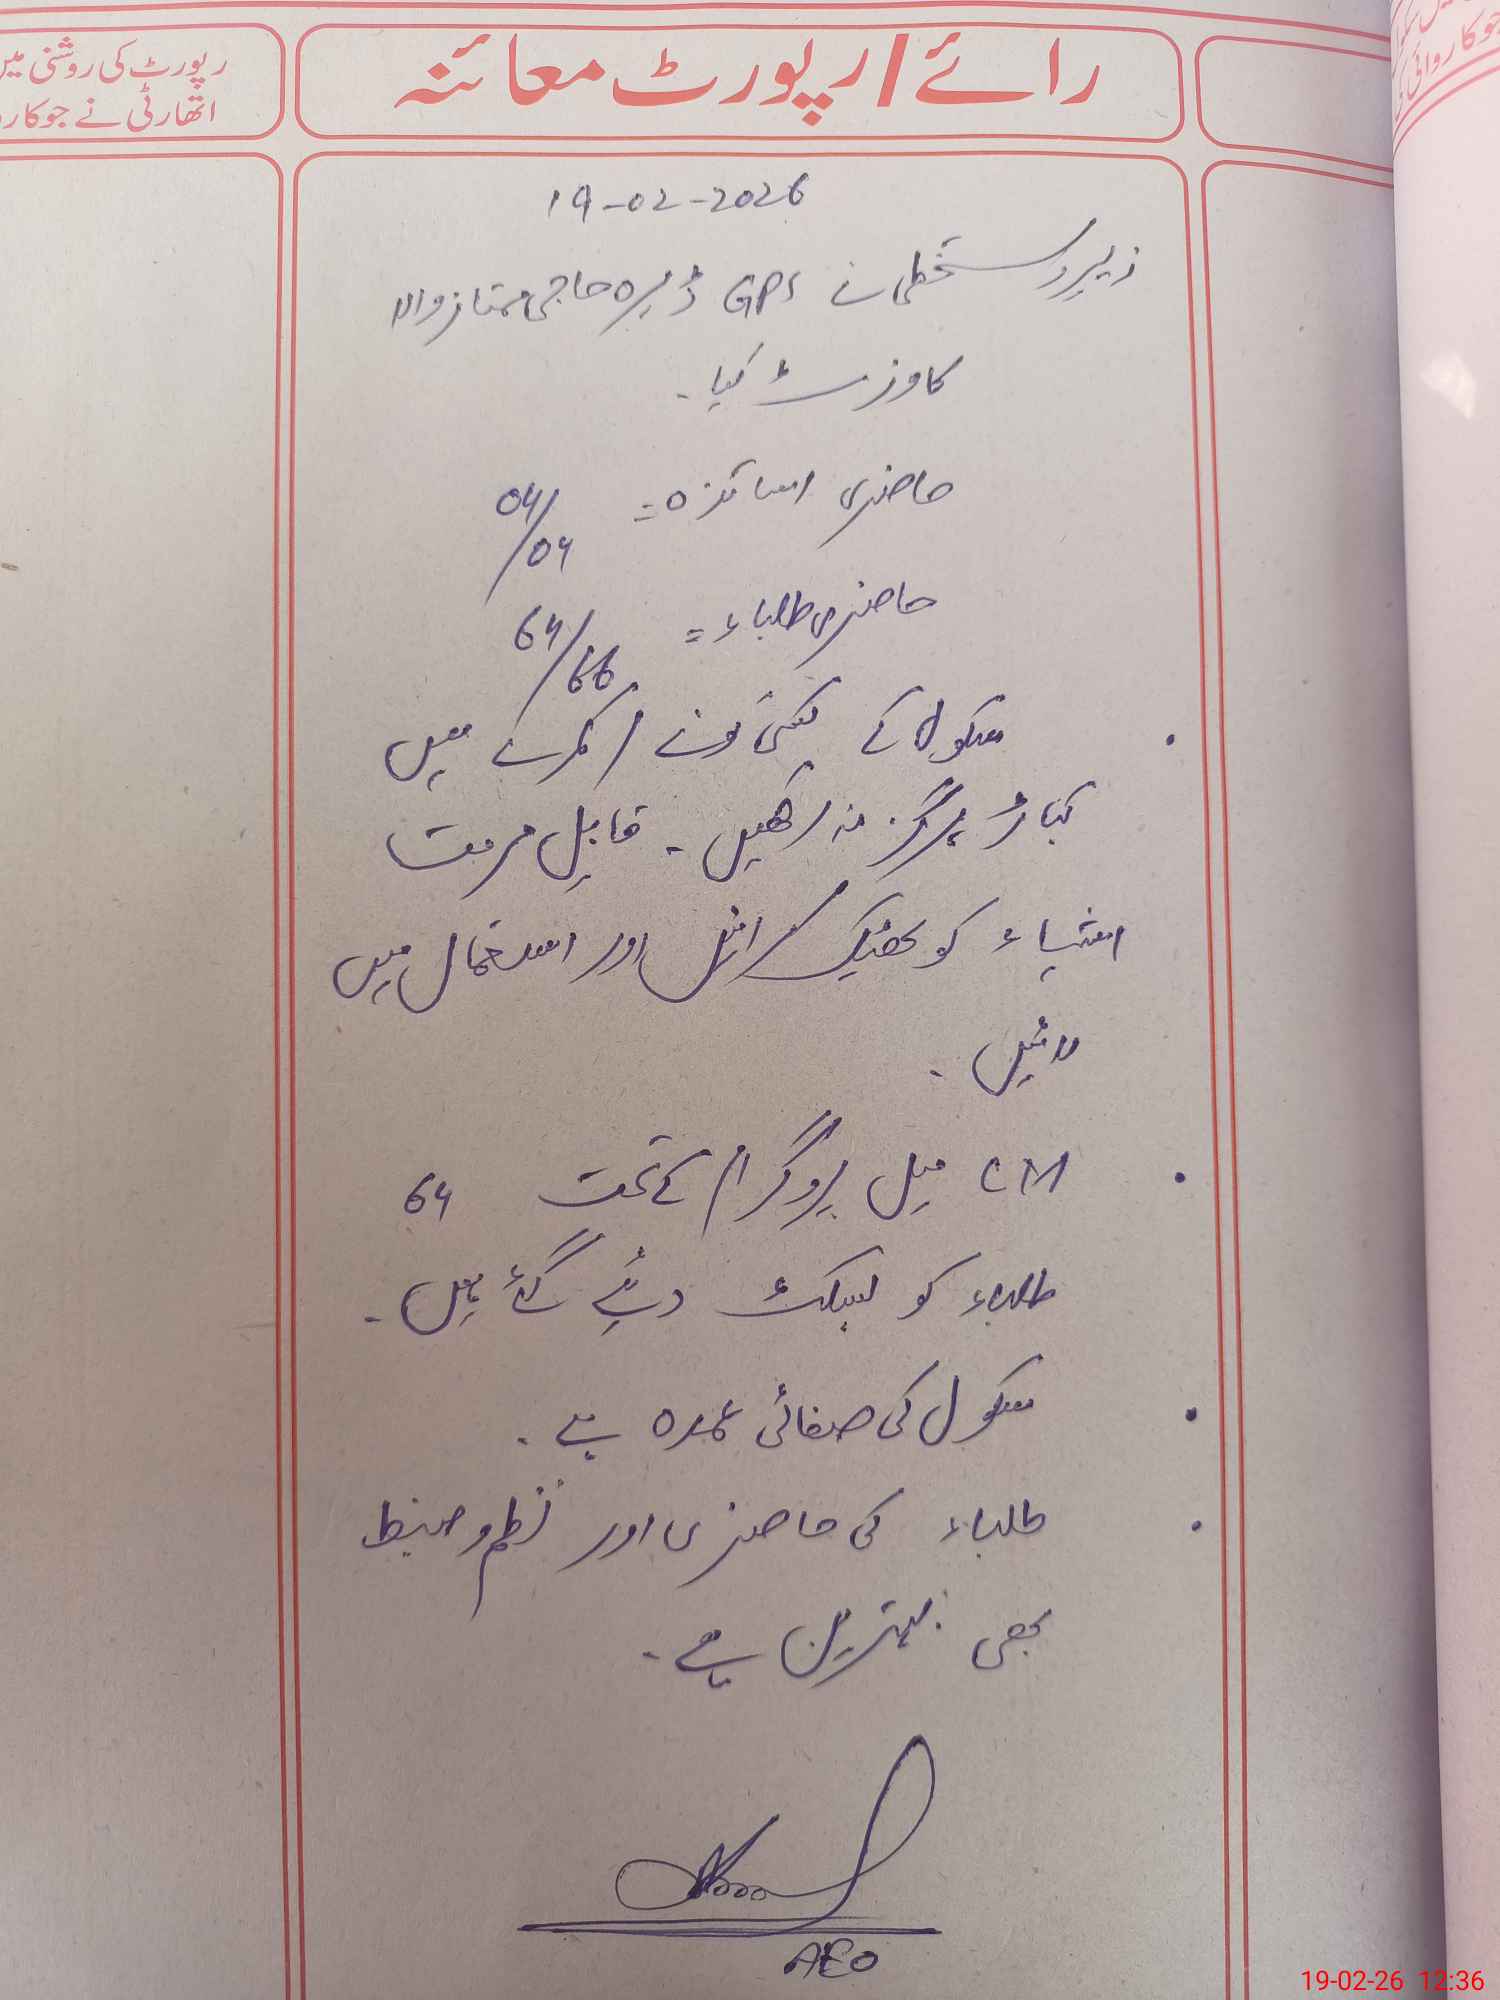 رائے/رپورٹ معائنہ
رپورٹ کی روشنی میں
اتھارٹی نے جو کار
جو کاروائی کی
19-02-2026
زیر دستخطی نے GPS ڈیرہ حاجی ممتاز والا
کا وزٹ کیا۔
حاضری اساتذہ = 04/04
حاضری طلباء = 64/66
• سکول کے کسی کونے / کمرے میں
کباڑ ہرگز نہ رکھیں۔ قابل مرمت
اشیاء کو ٹھیک کرائیں اور استعمال میں
لائیں۔
• CM میل پروگرام کے تحت 64
طلباء کو بسکٹ دیئے گئے ہیں۔
• سکول کی صفائی عمدہ ہے۔
• طلباء کی حاضری اور نظم و ضبط
بھی بہترین ہے۔
AEO
19-02-26 12:36